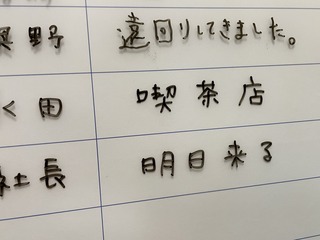 野 遠回りしてきました。
田 喫茶店
社長 明日来る